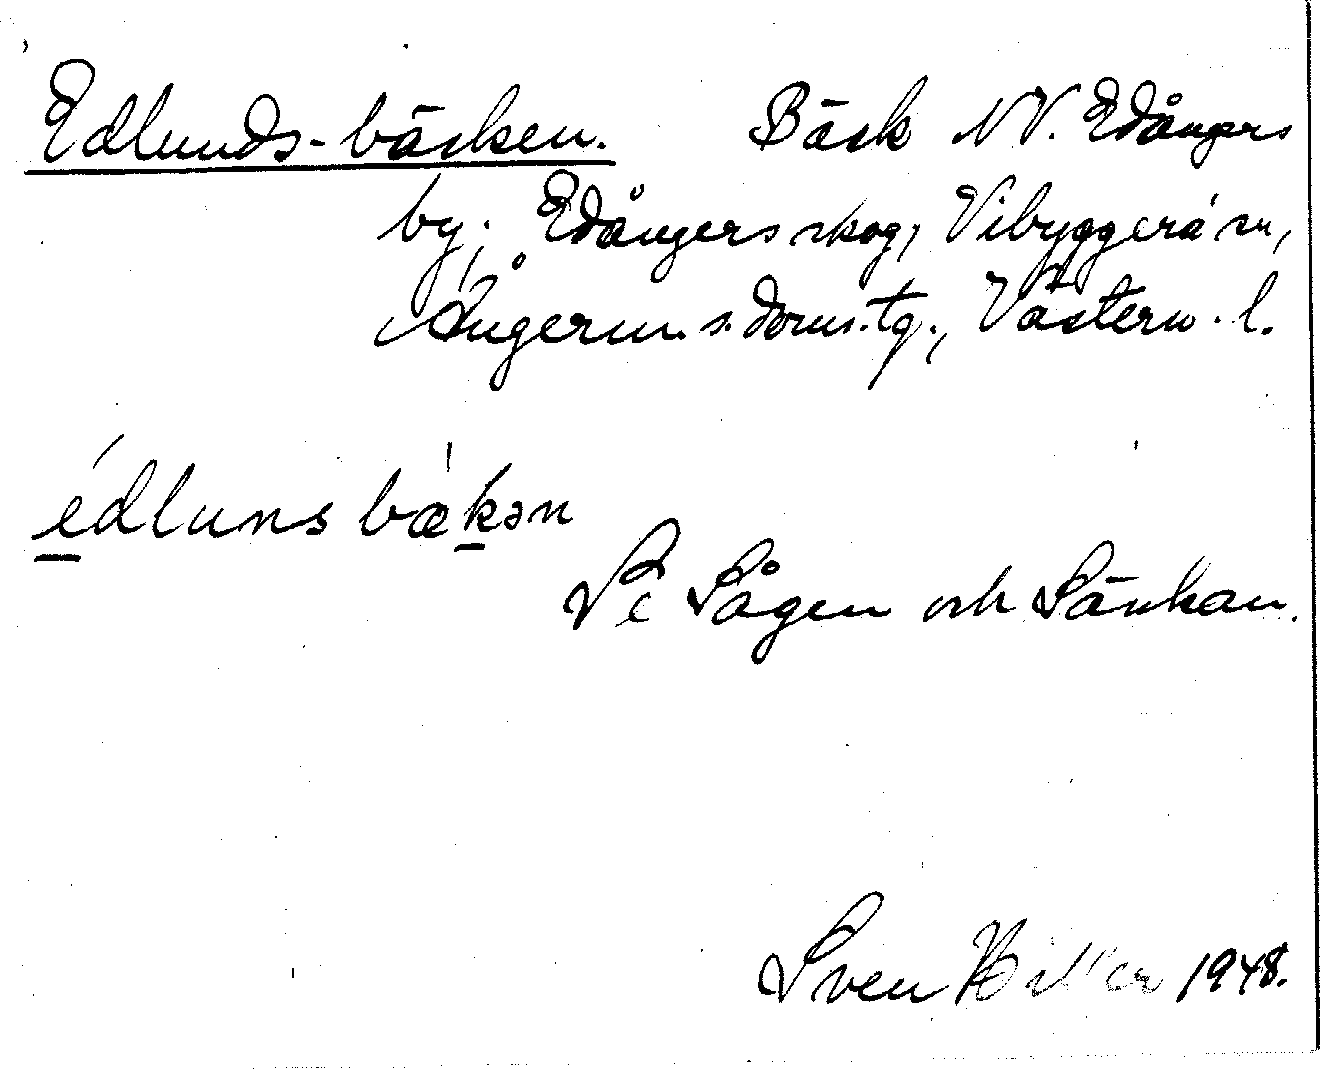 Edlunds-bäcken. Bäck NV. Edångers
by, Edångers skog, Vibyggerå sn,
Ångerm. s. doms. tg., Västern. l.
édluns bækən
Se Sågen och Sänkan.
Sven Hiller 1948.